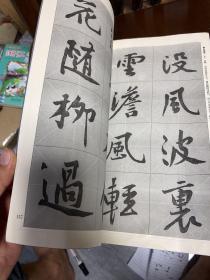 没風波裏
雲澹風輕
花随柳過